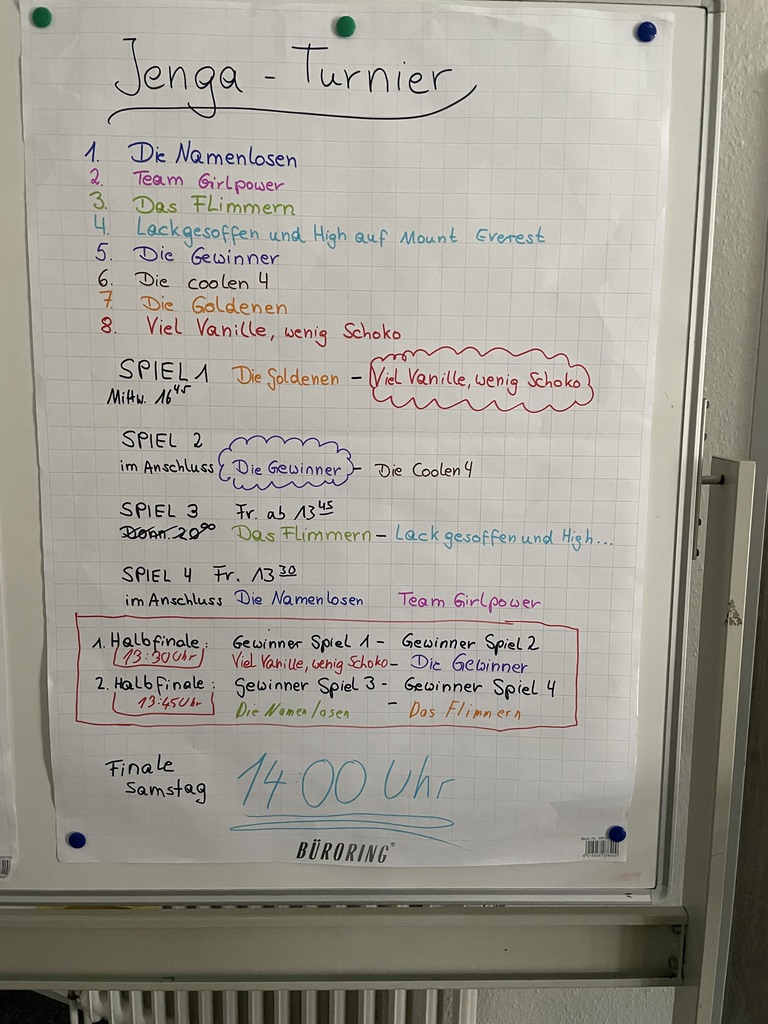 Jenga - Turnier
1. Die Namenlosen
2. Team Girlpower
3. Das Flimmern
4. Lackgesoffen und High auf Mount Everest
5. Die Gewinner
6. Die coolen 4
7. Die Goldenen
8. Viel Vanille, wenig Schoko
SPIEL 1 Die Goldenen - Viel Vanille, wenig Schoko
Mittw. 16 45
SPIEL 2
im Anschluss Die Gewinner - Die Coolen 4
SPIEL 3 Fr. ab 13 45
Donn. 20 00 Das Flimmern - Lackgesoffen und High...
SPIEL 4 Fr. 13 30
im Anschluss Die Namenlosen Team Girlpower
1. Halbfinale: Gewinner Spiel 1 - Gewinner Spiel 2
13:30 Uhr Viel Vanille, wenig Schoko - Die Gewinner
2. Halbfinale: Gewinner Spiel 3 - Gewinner Spiel 4
13:45 Uhr Die Namenlosen - Das Flimmern
Finale
Samstag 14:00 Uhr
BÜRORING®